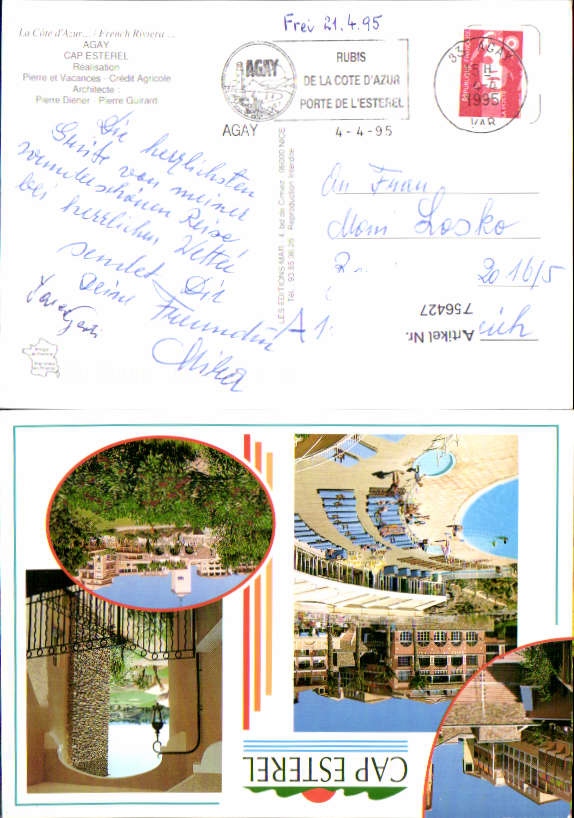 La Côte d'Azur... / French Riviera ...
AGAY
CAP ESTEREL
Réalisation
Pierre et Vacances - Crédit Agricole
Architecte :
Pierre Diener - Pierre Guirard
Frei 21.4.95
AGAY
RUBIS
DE LA COTE D'AZUR
PORTE DE L'ESTEREL
AGAY
4-4-95
AGAY
1995
VAR
Die herzlichsten
Grüße von meiner
wunderschönen Reise
bei herrlichem Wetter
sendet Dir
Deine Freundin
Mika
LES EDITIONS MAR - 4, bld de Cimiez 06000 NICE
Reproduction interdite
An Frau
Moni Losko
2016/5
A1
Artikel Nr.
756427
CAP ESTEREL